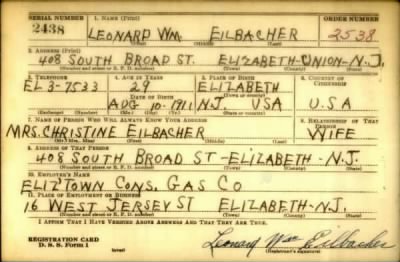 SERIAL NUMBER 1. NAME (Print) ORDER NUMBER
2438 LEONARD WM. EILBACHER 2538
(First) (Middle) (Last)
2. ADDRESS (Print)
408 SOUTH BROAD ST. ELIZABETH-UNION-N.J.
(Number and street or R. F. D. number) (Town) (County) (State)
3. TELEPHONE 4. AGE IN YEARS 5. PLACE OF BIRTH 6. COUNTRY OF CITIZENSHIP
EL 3-7533 29 ELIZABETH
DATE OF BIRTH (Town or county)
AUG 10-1911 N.J. USA U.S.A
(Exchange) (Number) (Mo.) (Day) (Yr.) (State or country)
7. NAME OF PERSON WHO WILL ALWAYS KNOW YOUR ADDRESS 8. RELATIONSHIP OF THAT PERSON
MRS. CHRISTINE EILBACHER WIFE
(Mr., Mrs., Miss) (First) (Middle) (Last)
9. ADDRESS OF THAT PERSON
408 SOUTH BROAD ST-ELIZABETH-N.J.
(Number and street or R. F. D. number) (Town) (County) (State)
10. EMPLOYER'S NAME
ELIZ'TOWN CONS. GAS CO
11. PLACE OF EMPLOYMENT OR BUSINESS
16 WEST JERSEY ST ELIZABETH-N.J.
(Number and street or R. F. D. number) (Town) (County) (State)
I AFFIRM THAT I HAVE VERIFIED ABOVE ANSWERS AND THAT THEY ARE TRUE.
REGISTRATION CARD
D. S. S. Form 1 (over) Leonard Wm Eilbacher
(Registrant's signature)